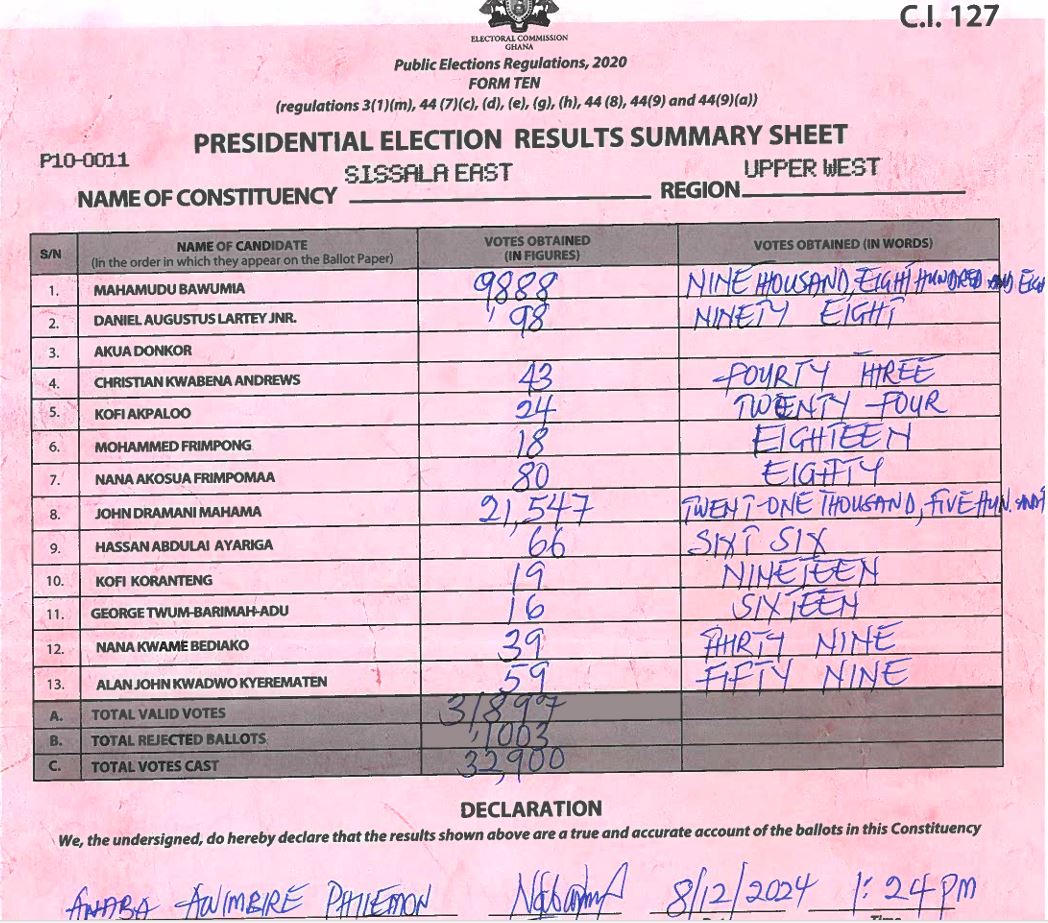 C.I. 127
ELECTORAL COMMISSION
GHANA
Public Elections Regulations, 2020
FORM TEN
(regulations 3(1)(m), 44 (7)(c), (d), (e), (g), (h), 44 (8), 44(9) and 44(9)(a))
PRESIDENTIAL ELECTION RESULTS SUMMARY SHEET
P10-0011
NAME OF CONSTITUENCY SISSALA EAST REGION UPPER WEST
S/N NAME OF CANDIDATE (In the order in which they appear on the Ballot Paper) VOTES OBTAINED (IN FIGURES) VOTES OBTAINED (IN WORDS)
1. MAHAMUDU BAWUMIA 9888 NINE THOUSAND, EIGHT HUNDRED AND EIGH
2. DANIEL AUGUSTUS LARTEY JNR. 98 NINETY EIGHT
3. AKUA DONKOR
4. CHRISTIAN KWABENA ANDREWS 43 FOURTY THREE
5. KOFI AKPALOO 24 TWENTY FOUR
6. MOHAMMED FRIMPONG 18 EIGHTEEN
7. NANA AKOSUA FRIMPOMAA 80 EIGHTY
8. JOHN DRAMANI MAHAMA 21,547 TWENT-ONE THOUSAND, FIVE HUN. AND
9. HASSAN ABDULAI AYARIGA 66 SIXT SIX
10. KOFI KORANTENG 19 NINETEEN
11. GEORGE TWUM-BARIMAH-ADU 16 SIXTEEN
12. NANA KWAME BEDIAKO 39 THIRTY NINE
13. ALAN JOHN KWADWO KYEREMATEN 59 FIFTY NINE
A. TOTAL VALID VOTES 31,897
B. TOTAL REJECTED BALLOTS 1,003
C. TOTAL VOTES CAST 32,900
DECLARATION
We, the undersigned, do hereby declare that the results shown above are a true and accurate account of the ballots in this Constituency
ANABA AWIMBIRE PHILEMON 8/12/2024 1:24PM